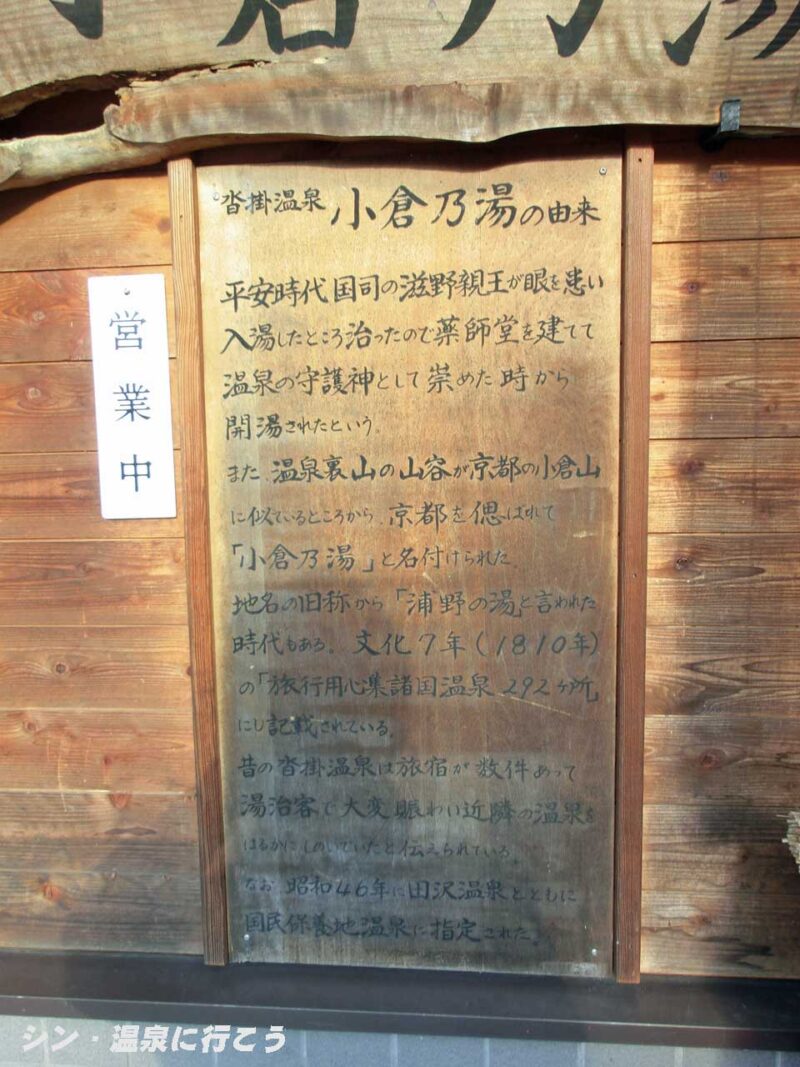 小倉乃湯
沓掛温泉 小倉乃湯の由来
平安時代国司の滋野親王が眼を患い
入湯したところ治ったので薬師堂を建てて
温泉の守護神として崇めた時から
開湯されたという。
また、温泉裏山の山容が京都の小倉山
に似ているところから、京都を偲ばれて
「小倉乃湯」と名付けられた。
地名の旧称から「浦野の湯」と言われた
時代もある。文化7年(1810年)
の「旅行用心集諸国温泉292ヶ所」
にし記載されている。
昔の沓掛温泉は旅宿が数件あって
湯治客で大変賑わい近隣の温泉を
はるかにしのいでいたと伝えられている。
なお 昭和46年に田沢温泉とともに
国民保養地温泉に指定された。
営業中
シン・温泉に行こう